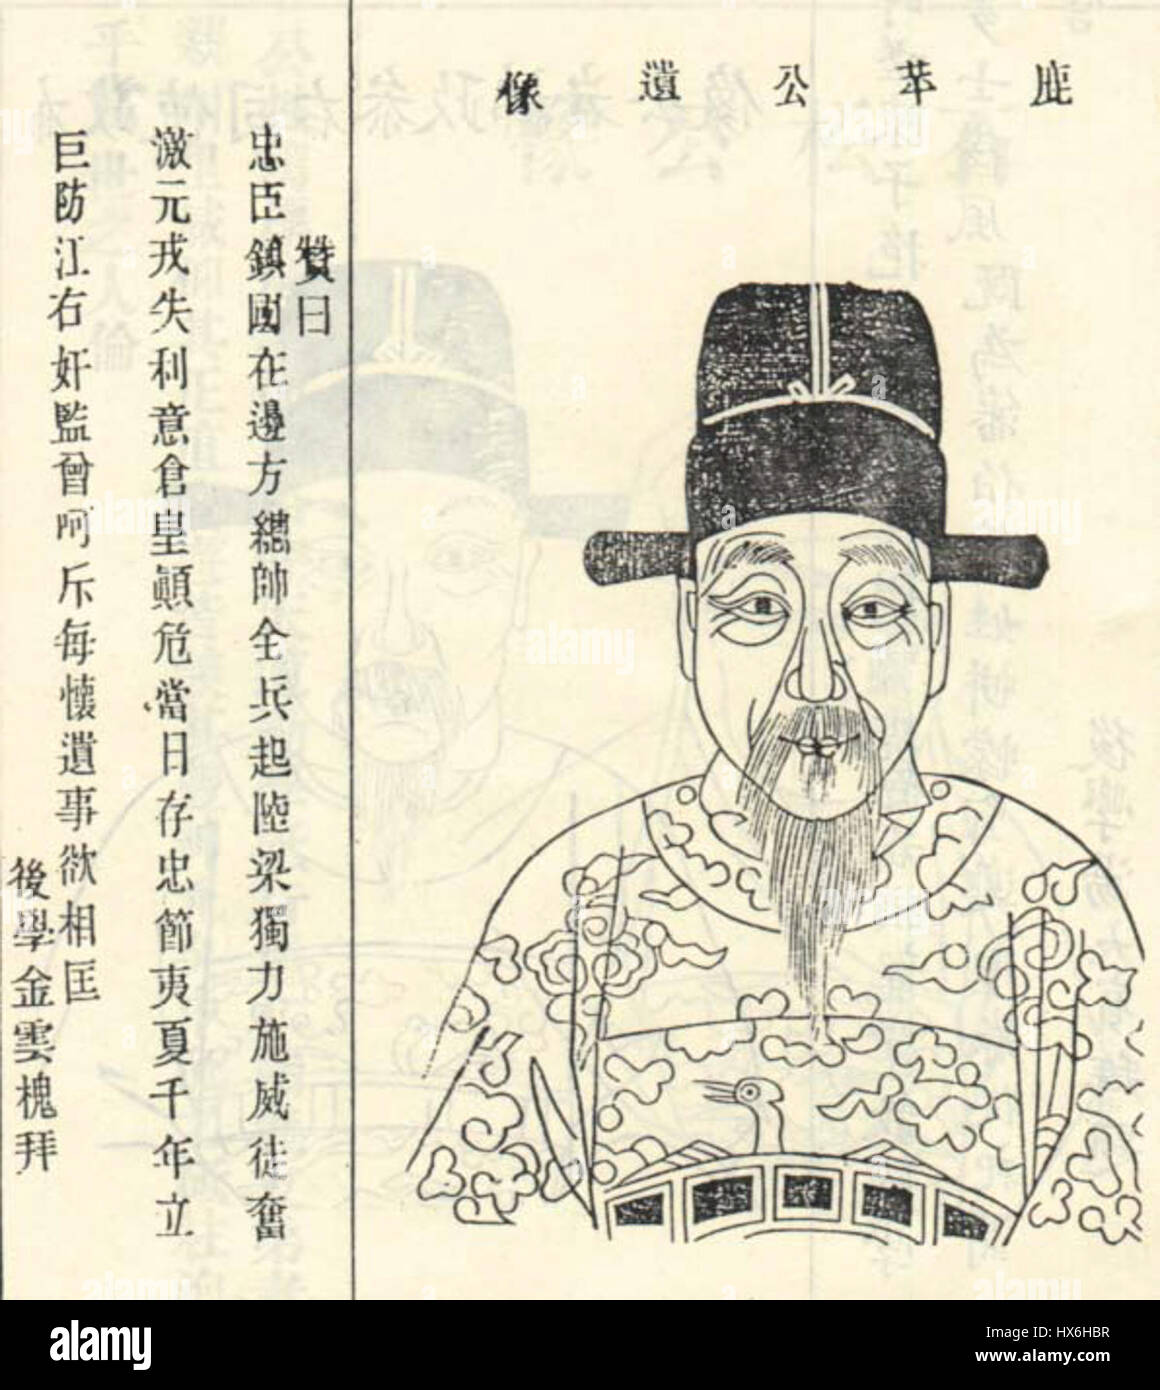 鹿苹公遺像
贊曰
忠臣鎮國在邊方總帥全兵起陸梁獨力施威徒奮
激元戎失利意倉皇顛危當日存忠節夷夏千年立
巨防江右奸監曾呵斥每懷遺事欲相匡
後學金雲槐拜
alamy
Image ID: HX6HBR
www.alamy.com